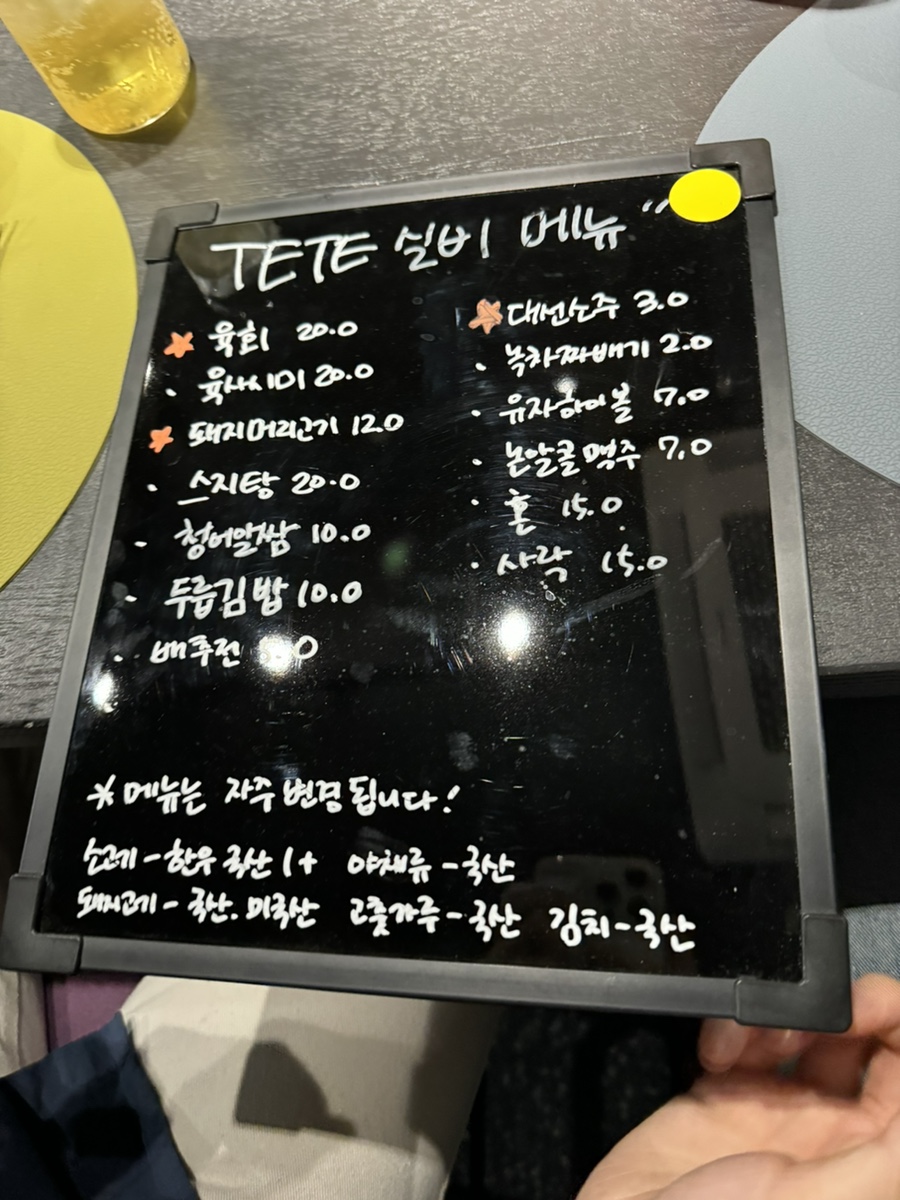 TETE 실비 메뉴 "
육회 20.0
육사시미 20.0
돼지머리고기 12.0
스지탕 20.0
청어알쌈 10.0
두릅김밥 10.0
배추전
대선소주 3.0
녹차짜배기 2.0
유자하이볼 7.0
논알콜맥주 7.0
혼 15.0
사락 15.0
* 메뉴는 자주 변경됩니다!
소고기 - 한우 국산 1+ 야채류 - 국산
돼지고기 - 국산. 미국산 고춧가루 - 국산 김치 - 국산